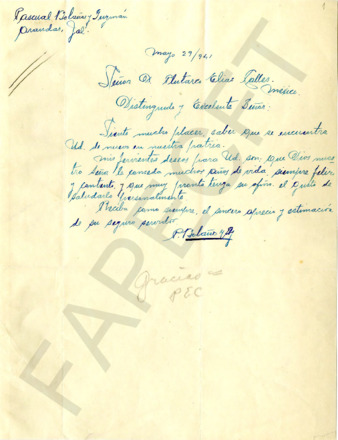 Pascual Bolaños y Guzmán
Arandas, Jal.
Mayo 29/941
Señor D. Plutarco Elías Calles.
México.
Distinguido y Excelente Señor:
Siento mucho placer, saber que se encuentra
Ud. de nuevo en nuestra patria.
Mis fervientes deseos para Ud. son, que Dios nues
tro Señor le conceda muchos años de vida, siempre feliz,
y contento, y que muy pronto tenga su afmo. el gusto de
saludarlo personalmente.
Reciba como siempre, el sincero aprecio y estimación
de su seguro servidor.
P. Bolaños y G
Gracias
PEC
FAPECFT